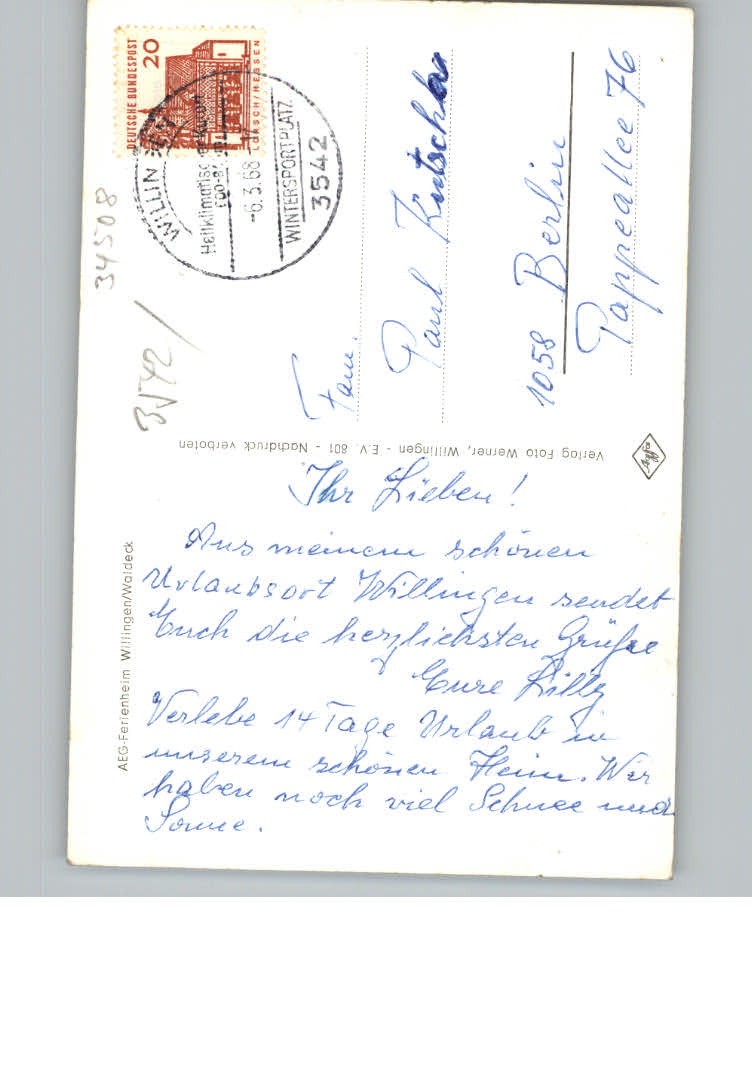 DEUTSCHE BUNDESPOST
20
LORSCH/HESSEN
WILLIN
Heilklimatischer
-6.3.68-
WINTERSPORTPLATZ
3542
34508
3542
Fam.
Paul
1058 Berlin
Pappeallee 76
Verlag Foto Werner, Willingen - E.V. 801 - Nachdruck verboten
Agfa
AEG-Ferienheim Willingen/Waldeck
Ihr Lieben!
Aus meinem schönen
Urlaubsort Willingen sendet
Euch die herzlichsten Grüße
Eure Lilly
Verlebe 14 Tage Urlaub in
unserem schönen Heim. Wir
haben noch viel Schnee und
Sonne.